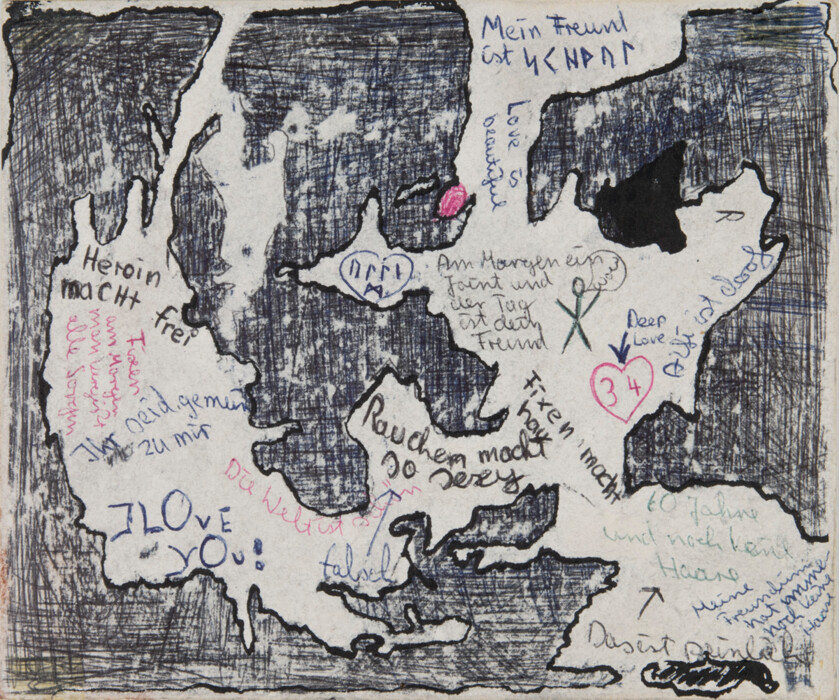 Mein Freund
ist
Love is
beautiful
Heroin
macht
frei
Am Morgen ein
Joint und
der Tag
ist dein
Freund
Deep
Love
ist doof
34
Fixen
am Morgen
alle Sorgen
Ihr seid gemein
zu mir
Rauchem macht
so sexy
Fixen macht
Die Welt ist schön
falsch
ILOvE
yOu!
60 Jahre
und noch keine
Haare
Meine
Freundin
hat immer
noch keine
Haare
Das ist peinlich